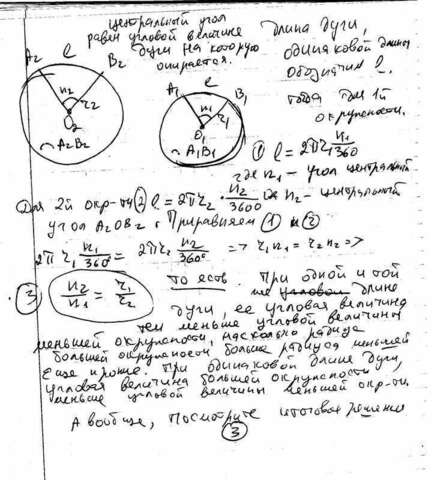 центральный угол
равен угловой величине
дуги на которую
опирается.
длина дуги,
одинаковой длины
обозначим l.
тогда для 1й
окружности.
A₂ l B₂
n₂ r₂
O₂
◠A₂B₂
A₁ l B₁
n₁ r₁
O₁
◠A₁B₁
① l = 2πr₁ n₁/360
где n₁ - угол центральный
Для 2й окр-ти ② l = 2πr₂ · n₂/360° где n₂ - центральный
угол A₂OB₂. Приравняем ① и ②
2πr₁ n₁/360° = 2πr₂ n₂/360° => r₁n₁ = r₂n₂ =>
③ n₂/n₁ = r₁/r₂ то есть. При одной и той
же угловой длине
дуги, ее угловая величина
тем меньше угловой величины
меньшей окружности, насколько радиус
большей окружности больше радиуса меньшей
Еще проще. При одинаковой длине дуги,
угловая величина большей окружности,
меньше угловой величины меньшей окр-ти
А вообще, посмотрите итоговое решение
③